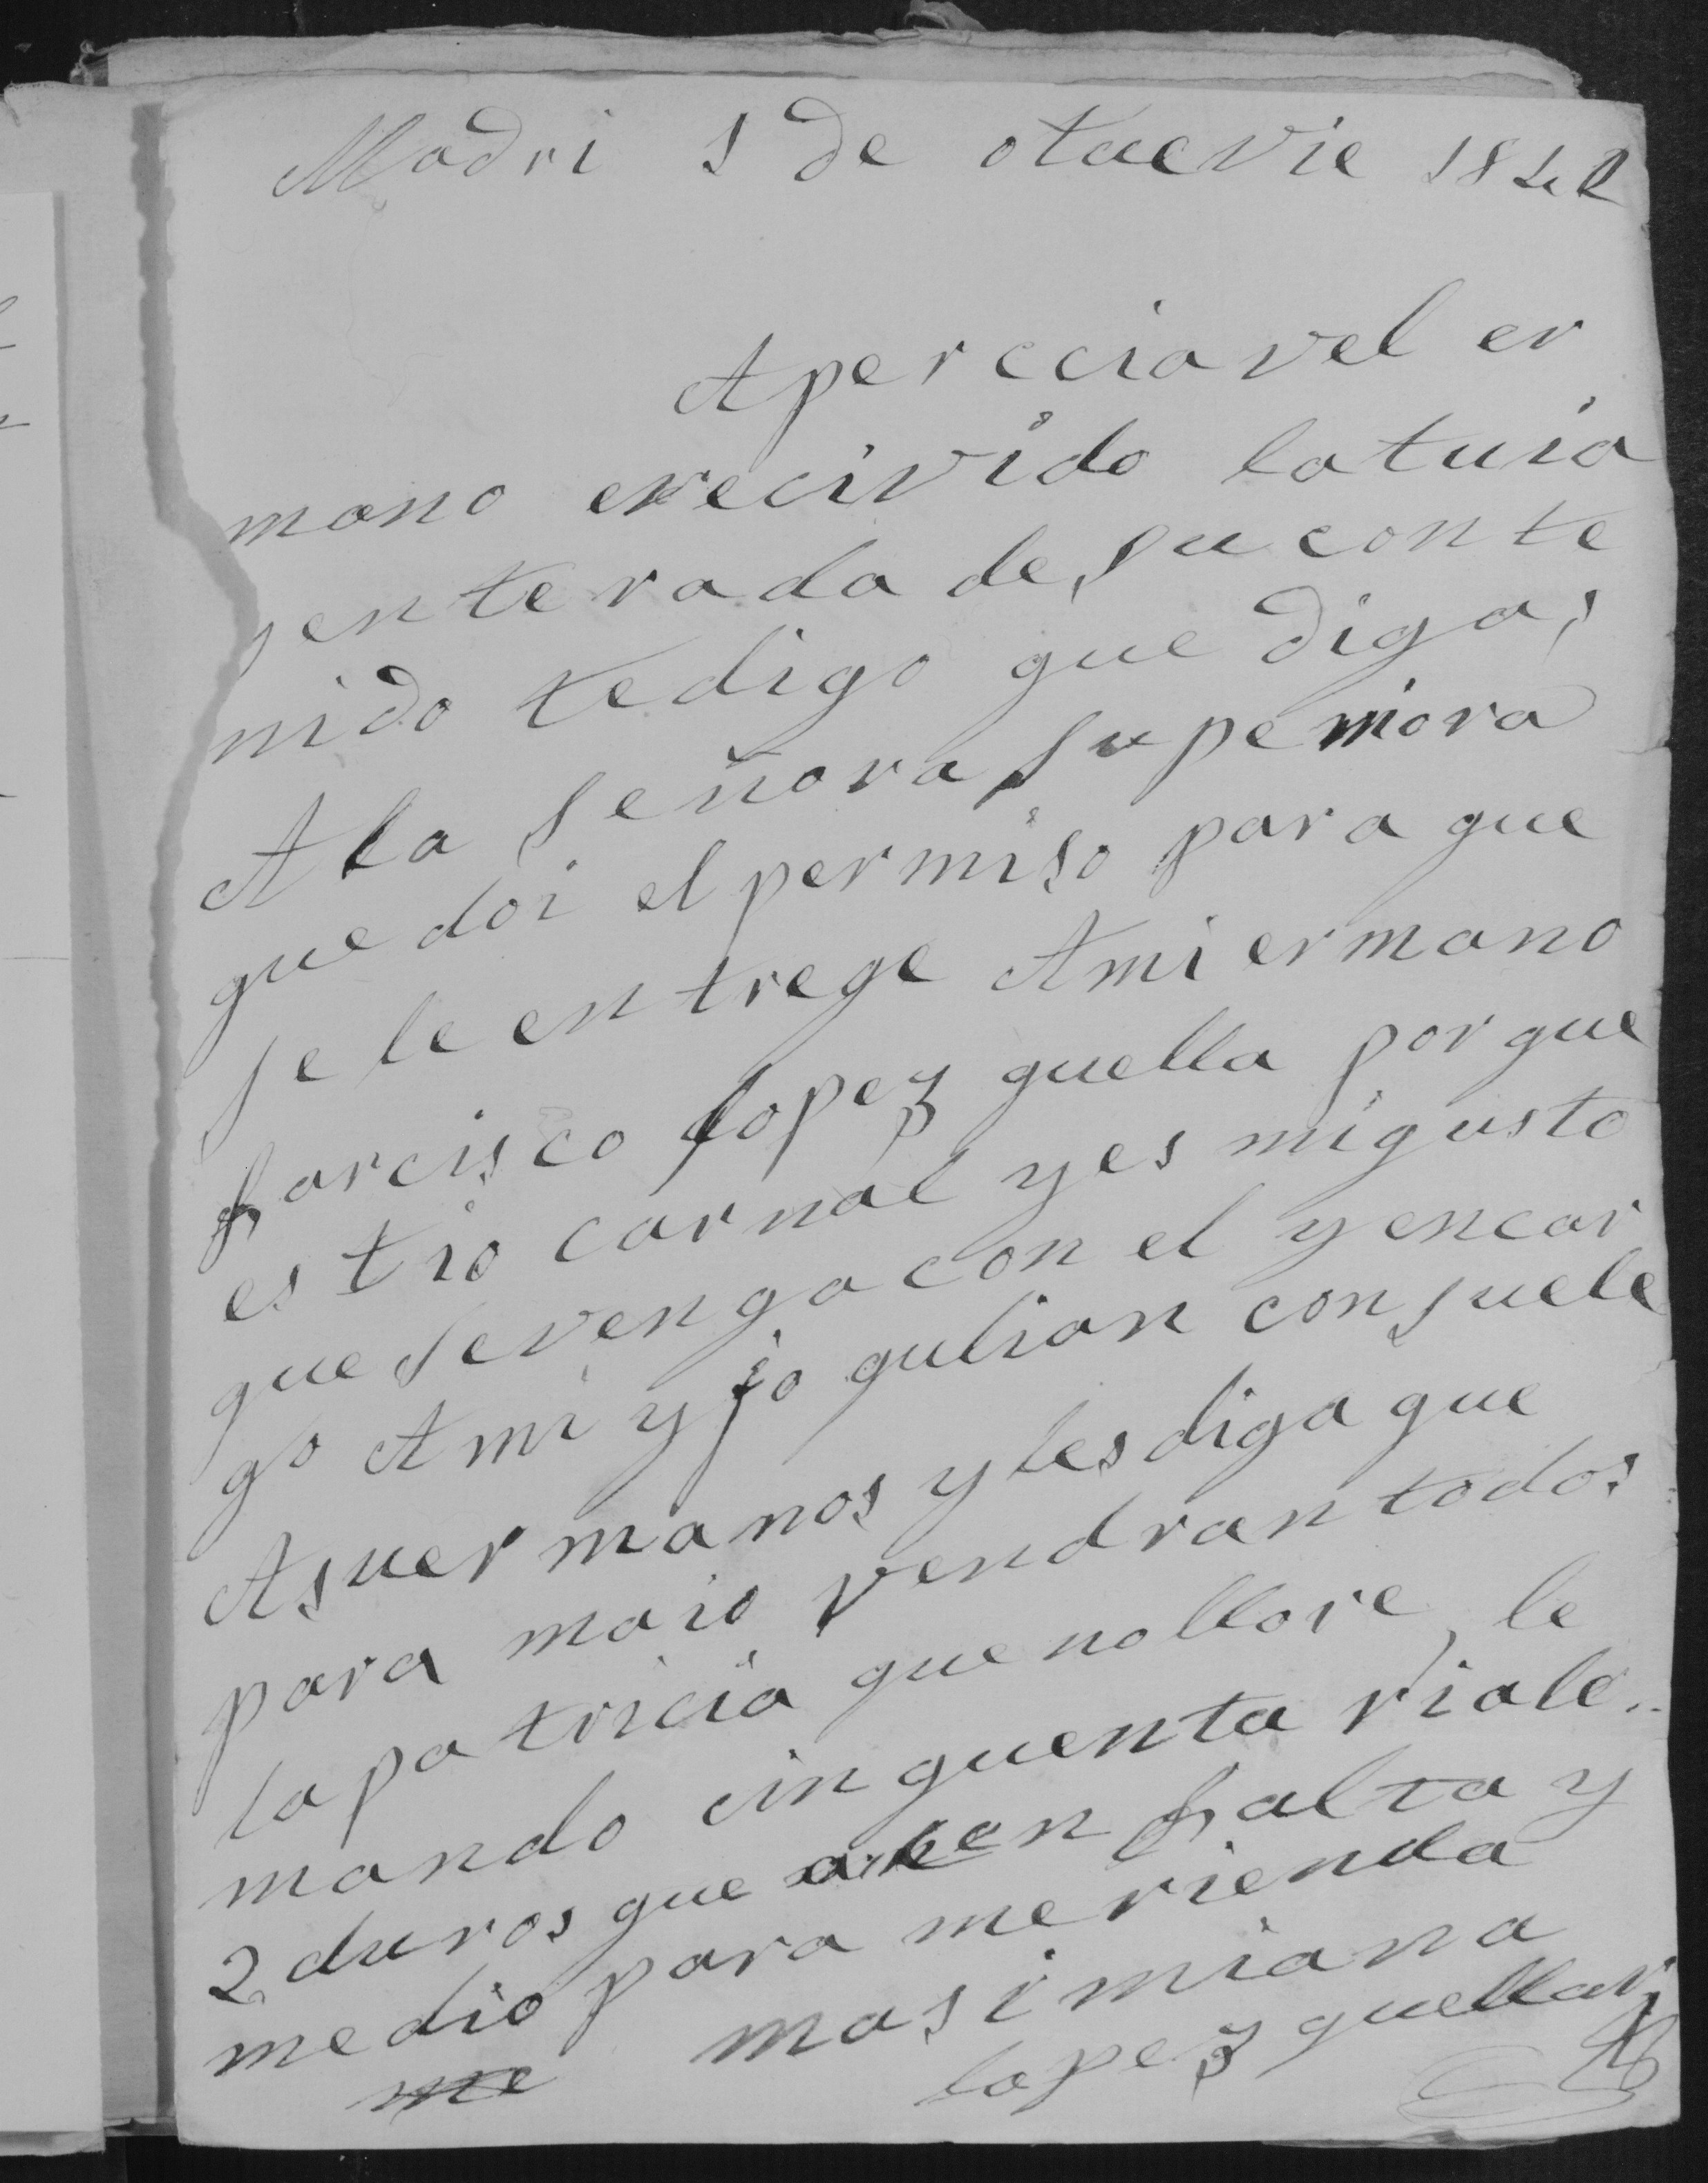 Madri 1 de otuevie 18
Apercciavel er
mano erecivido latuia
yenterada de su conte
nido tedigo que digas
A la señora superiora
que doi el permiso para que
se le entrege Ami ermano
farcisco lopez quella porque
es tio carnal yes migusto
que sevenga con el y encar
go Ami yjo gulian consuele
Asuermanos yles diga que
para maio vendran todos
lapatricia que nollore, le
mando cinquenta riale..
2 duros que acen falta y
medio para merienda
me masimiana
lopez quellar